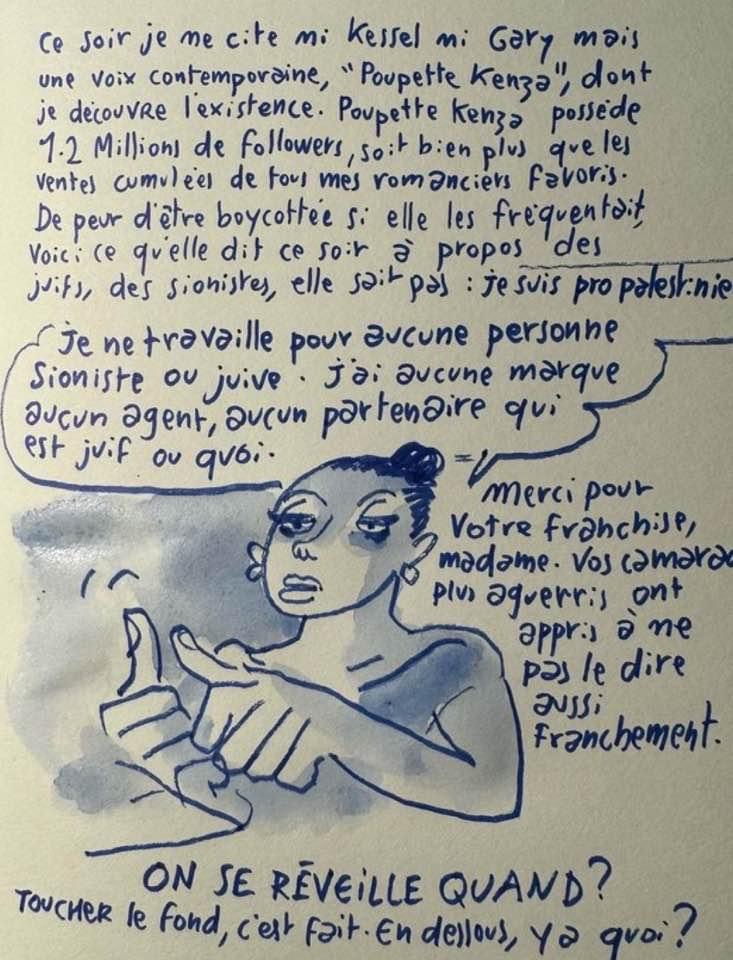 Ce soir je ne cite ni Kessel ni Gary mais
une voix contemporaine, "Poupette Kenza", dont
je découvre l'existence. Poupette Kenza possède
1.2 Millions de followers, soit bien plus que les
ventes cumulées de tous mes romanciers favoris.
De peur d'être boycottée si elle les fréquentait,
Voici ce qu'elle dit ce soir à propos des
juifs, des sionistes, elle sait pas : je suis pro palestinie
Je ne travaille pour aucune personne
Sioniste ou juive. J'ai aucune marque
aucun agent, aucun partenaire qui
est juif ou quoi.
Merci pour
votre franchise,
madame. Vos camarad
plus aguerris ont
appris à ne
pas le dire
aussi
franchement.
ON SE RÉVEILLE QUAND?
TOUCHER le fond, c'est fait. En dessous, y a quoi?